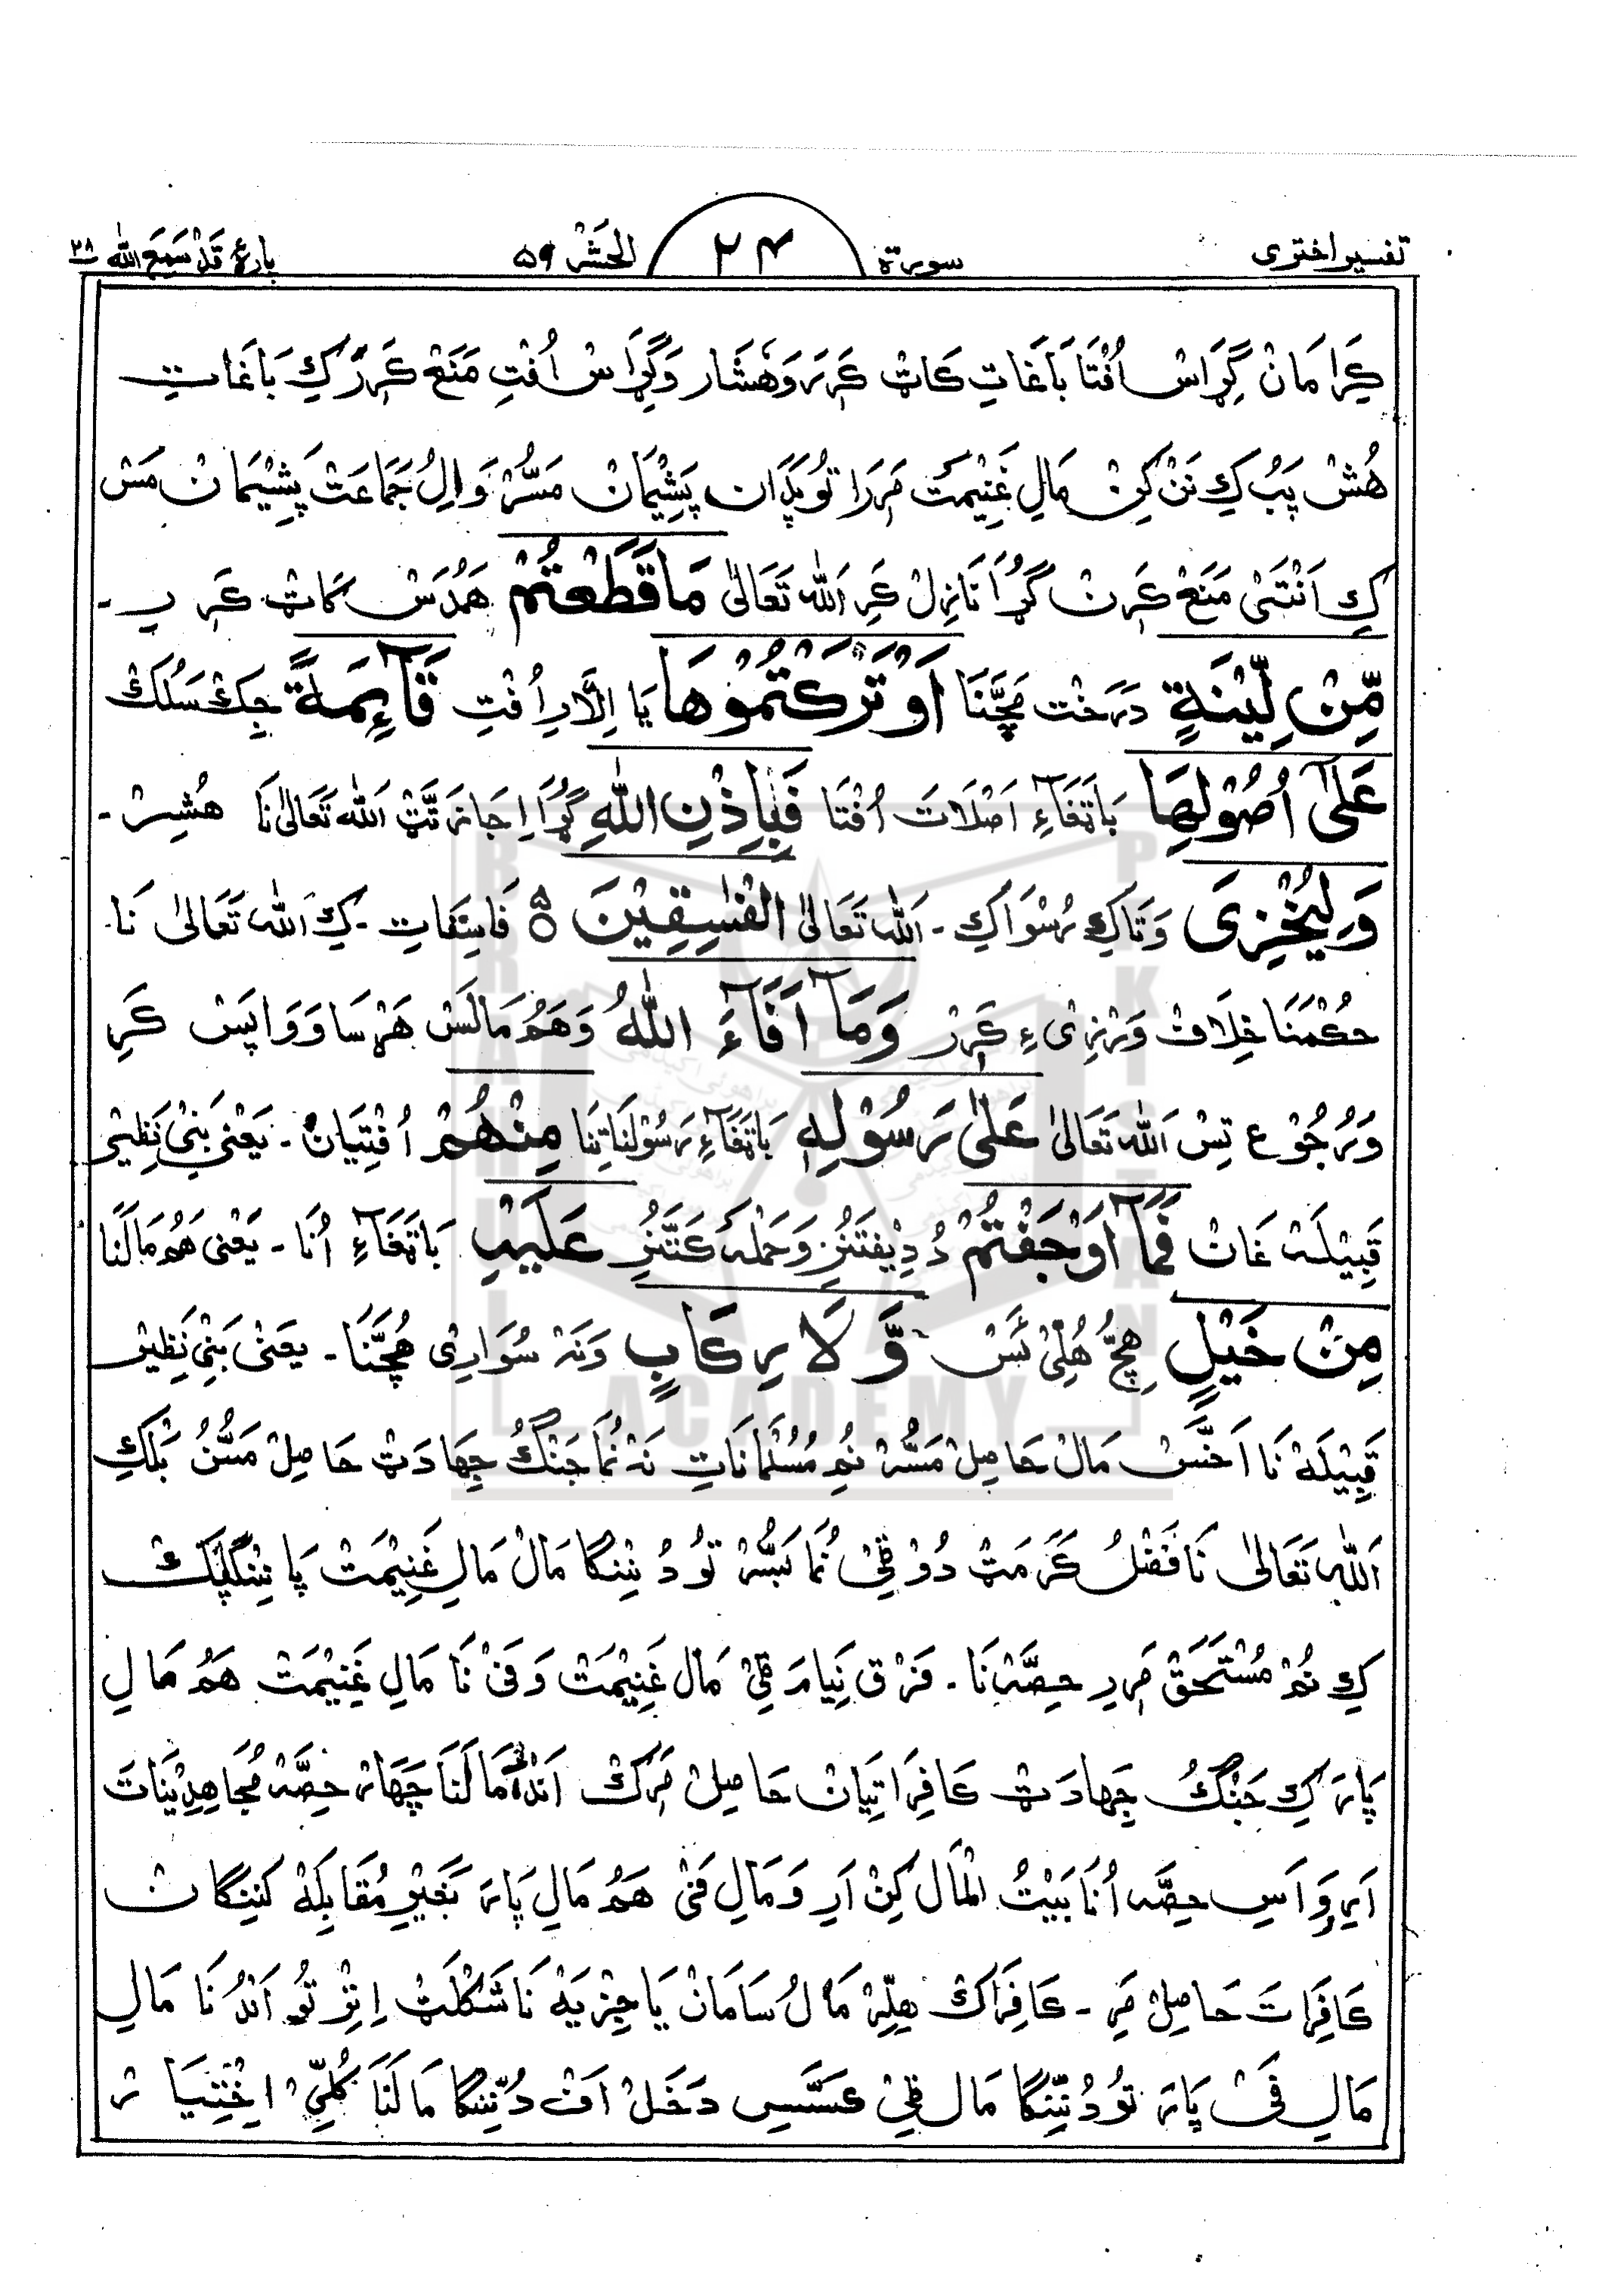 تفسیر اختری سورة ۲۴ الحشر ۵۹ پارۂ قد سمع الله ۲۸
کِرَامَانْ گِڑَاسْ اُفْتَا بَاغَاتِ کَاٹْ کَرَرَ وَهُشَار وَگِڑَاسْ اُفْتِ مَنَعْ کَرَرْ کِ بَاغَاتِ
هُشْ پَبُ کِ نَنْ کِنْ مَالِ غَنِیْمَتْ مَرَرَا تَوْ پَدَان پَشِیْمَانْ مَسُّرْ وَ اِلُ جَمَاعَتْ پَشِیْمَانْ مَسْ
کِ اَنْتَئی مَنَعْ کَرِنْ گُڑَا نَازِلْ کَرِ اَللّٰه تَعَالیٰ مَا قَطَعْتُمْ هَمُدَسْ کَاٹْ کَرِ رے۔
مِّنْ لِّيْنَةٍ دَرَخْت مَچَّنَا اَوْ تَرَكْتُمُوْهَا يَا اِلَّارِ اُفْتِ قَآئِمَةً جِکْ سَلُکْ
عَلٰٓى اُصُوْلِهَا بَاتَغَآءِ اَصْلَاتَ اُفْتَا فَبِاِذْنِ اللّٰهِ گُڑَا اِجَازَتَٹْ اَللّٰه تَعَالیٰ نَا هُشِرْ۔
وَلِيُخْزِىَ وَتَاکِ رُسْوَا کِ۔ اَللّٰه تَعَالیٰ الْفٰسِقِيْنَ ۵ فَاسِقَاتِ۔ کِ اَللّٰه تَعَالیٰ نَا۔
حُکْمَنَا خِلَافْ وَرْزِیْ ءِ کَرْرْ وَمَآ اَفَآءَ اللّٰهُ وَهَمُ مَالَسْ هَرْسَا وَ وَاپَسْ کَرِ
وَرُجُوْع تِسْ اَللّٰه تَعَالیٰ عَلٰى رَسُوْلِهٖ بَاتَغَآءِ رَسُوْلَنَا تِنَا مِنْهُمْ اُفْتِیَانْ۔ یَعْنی بَنِیْ نَظِیْر
قَبِیْلَهْ غَانْ فَمَآ اَوْجَفْتُمْ دُدِیْفَتَنُرْ وَحَمْلَه کَتَّنُرْ عَلَيْهِ بَاتَغَآءِ اُنَا۔ یَعْنی هَمُ مَالَنَا
مِنْ خَيْلٍ هِچُّ هُلِیْ ئَسْ وَّلَا رِكَابٍ وَنَه سُوَارِیْ هُچَّنَا۔ یَعْنی بَنِیْ نَظِیْر
قَبِیْلَهْ نَا اَخَسْ مَالْ حَاصِلْ مَسُّرْ نُمْ مُسُلْمَانَاتِ نَه نُمَا جَنْگُ جِهَادَٹْ حَاصِلْ مَسُّنُ بَلْکِ
اَللّٰه تَعَالیٰ نَا فَضْلُ کَرَمَٹْ دُوْ ٹِیْ نُمَا بَسُّرْ تَوْ دُ نِنْگَا مَالْ مَالِ غَنِیْمَتْ پَا نِنْگَپَّکْ
کِ نُمْ مُسْتَحَقْ مَرِرِ حِصَّهْ نَا۔ فَرْق نِیَامَ ٹِیْ مَال غَنِیْمَتْ وَ فَیْ نَا مَالِ غَنِیْمَتْ هَمُ مَالِ
پَارَ کِ جَنْگُ جِهَادَٹْ کَافِرَاتِیَانْ حَاصِلْ مَرِکْ اَنْدَا مَالَنَا چَهَارْ حِصَّهْ مُجَاهِدِیْنَاتَ
اَرِ وَ اَسِ حِصَّه اُنَا بَیْتُ الْمَال کِنْ اَرِ وَ مَالِ فَیْ هَمُ مَالِ پَارَ بَغَیْرِ مُقَابِلَهْ کَنِنْگَانْ
کَافِرَاتَ حَاصِلْ مَرِ۔ کَافِرَاکْ هِلِّرْ مَالُ سَامَانْ یَا جِزْیَهْ نَا شَکْلَٹْ اِتِرْ تَوْ اَنْدُنَا مَالِ
مَالِ فَیْ پَارَ تَوْ دُنِنْگَا مَال ٹِیْ کَسَّسِ دَخَلْ اَفْ دُنِنْگَا مَالَنَا کُلِّیْ اِخْتِیَارْ